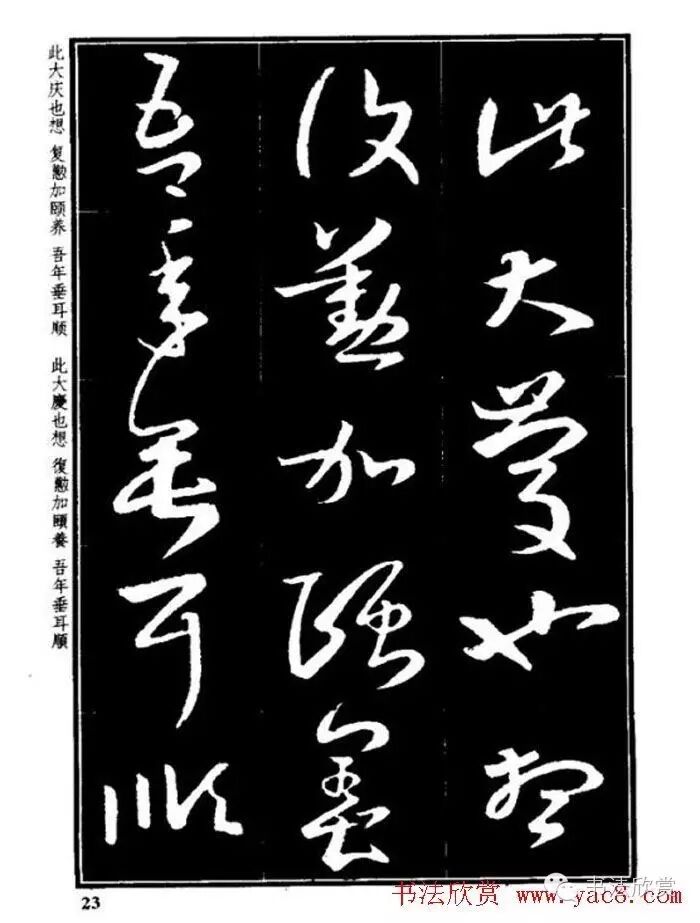 此大慶也想
復懃加頤養
吾年垂耳順
此大庆也想 复懃加颐养 吾年垂耳顺 此大慶也想 復懃加頤養 吾年垂耳順
23
书法欣赏 www.yac8.com
书法欣赏